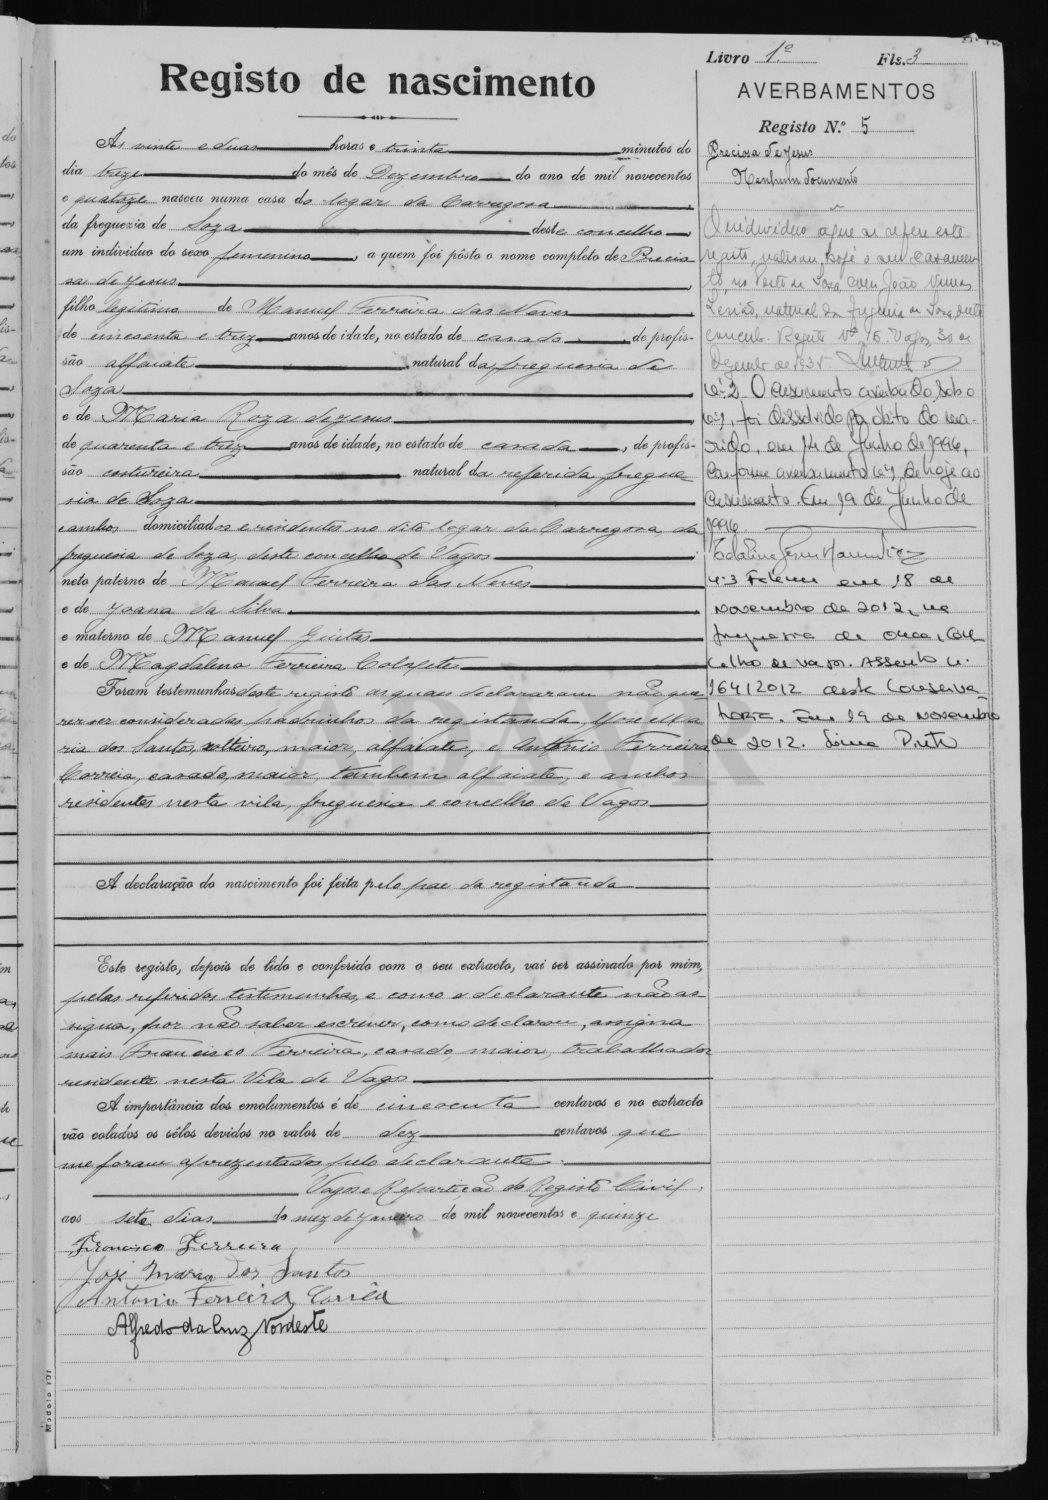 Registo de nascimento
Ás vinte e duas horas e trinta minutos do
dia treze do mês de Dezembro do ano de mil novecentos
e quatoze nasceu numa casa do logar da Carregosa
da freguezia de Soza deste concelho,
um individuo do sexo femenino, a quem foi pôsto o nome completo de Precio
sa de Jesus
filho legitimo de Manuel Ferreira das Neves
de cincoenta e trez anos de idade, no estado de casado, de profis-
são alfaiate, natural da freguesia de
Soza
e de Maria Roza de Jesus
de quarenta e trez anos de idade, no estado de casada, de profis-
são costureira natural da referida fregue
sia de Soza
e ambos domiciliados e residentes no dito logar da Carregosa, da
freguesia de Soza, deste concelho de Vagos
neto paterno de Manuel Ferreira das Neves
e de Joana da Silva
e materno de Manuel
e de Magdalena Ferreira
Foram testemunhas deste registo as quaes declararam não que
rer ser considerados padrinhos da registanda, José Ma
ria dos Santos, solteiro, maior, alfaiate, e Antonio Ferreira
Correia, casado, maior, tambem alfaiate, e ambos
residentes nesta vila, freguesia e concelho de Vagos
A declaração do nascimento foi feita pelo pae da registanda
Este registo, depois de lido e conferido com o seu extracto, vai ser assinado por mim,
pelas referidas testemunhas, e como o declarante não as
signa, por não saber escrever, como declarou, assigna
mais Francisco Ferreira, casado, maior, trabalhador
residente nesta Vila de Vagos
A importância dos emolumentos é de cincoenta centavos e no extracto
vão colados os sêlos devidos no valor de dez centavos que
me foram aprezentados pelo declarante.
Vagos e Repartição do Registo Civil,
aos sete dias do mez de Janeiro de mil novecentos e quinze
Francisco Ferreira
José Maria dos Santos
Antonio Ferreira Corrêa
Alfredo da Cruz Nordeste
Modelo 101
Livro 1.º Fls. 3
AVERBAMENTOS
Registo N.º 5
Preciosa de Jesus
Nenhum documento
O individuo a que se refere este
registo, realisou hoje o seu casamen
to, no Posto de Soza, com João Nunes
natural da freguesia de Soza, deste
concelho. Registo Nº 16. Vagos, 30 de
Dezembro de 193
Nº 2 O casamento averbado sob o
nº 1, foi dissolvido por óbito do ma-
rido, em 14 de Junho de 1996,
conforme averbamento nº 1, de hoje ao
casamento. Em 19 de Junho de
1996.
Nº 3 Faleceu em 18 de
novembro de 2012, na
freguesia de Ouca, con
celho de Vagos. Assento n.
164/2012 desta Conserva
toria. Em 19 de Novembro
de 2012.
ADAVR